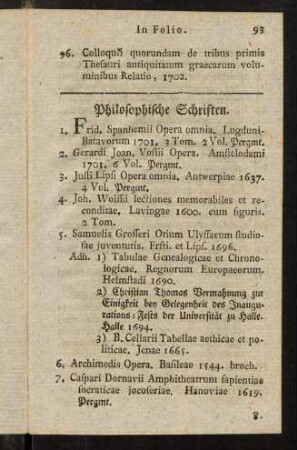 In Folio. 93
96. Colloquii quorundam de tribus primis
Thesauri antiquitatum graecarum volu-
minibus Relatio, 1702.
Philosophische Schriften.
1. Frid. Spanhemii Opera omnia, Lugduni-
Batavorum 1701. 3 Tom. 2 Vol. Pergmt.
2. Gerardi Joan. Vossii Opera. Amstelodami
1701. 6 Vol. Pergmt.
3. Justi Lipsi Opera omnia, Antwerpiae 1637.
4 Vol. Pergmt.
4. Joh. Wolffii lectiones memorabiles et re-
conditae, Lavingae 1600. cum figuris.
2 Tom.
5. Samuelis Grosseri Otium Ulyssaeum studio-
sae juventutis, Frfti. et Lips. 1696.
Adh. 1) Tabulae Genealogicae et Chrono-
logicae, Regnorum Europaeorum.
Helmstadi 1690.
2) Christian Thomas Vermahnung zur
Einigkeit bey Gelegenheit des Inaugu-
rations-Fests der Universität zu Halle.
Halle 1694.
3) B. Cellarii Tabellae aethicae et po-
liticae, Jenae 1665.
6. Archimedis Opera, Basileae 1544. broch.
7. Caspari Dornavii Amphitheatrum sapientiae
socraticae jocoseriae, Hanoviae 1619.
Pergmt.
8.